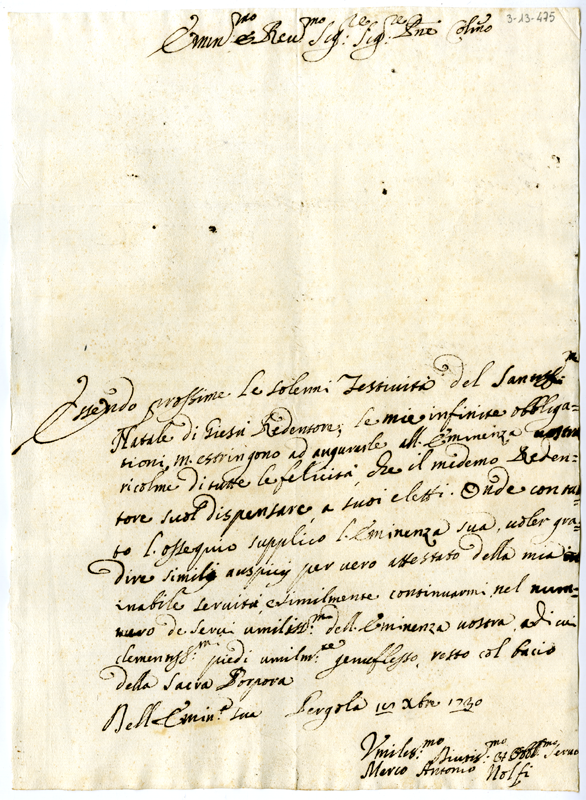 3-13-475
Emin.mo e Reu.mo Sig.re Sig.re Pne Colmo
Essendo prossime le solenni Festività del Santiss.mo
Natale di Giesù Redentore, le mie infinite obbliga=
tioni, m'estringono ad augurarle all'Eminenza vostra
ricolme di tutte le felicità, che il medemo Reden=
tore suol dispensare, a suoi eletti. Onde con tut
to l'ossequio supplico l'Eminenza sua, voler gra=
dire simili auspicij per vero attestato della mia
inabile servitù, e similmente continuarmi nel num=
mero de servi umiliss.mi dell'Eminenza vostra, a di cui
clementiss.mi piedi umilm.te genuflesso, resto col bacio
della Sacra Porpora
Dell'Emin.a sua Pergola Xbre 1730
Vmiliss.mo Diuotis.mo Et Obb.mo Seruo
Marco Antonio Nolfi